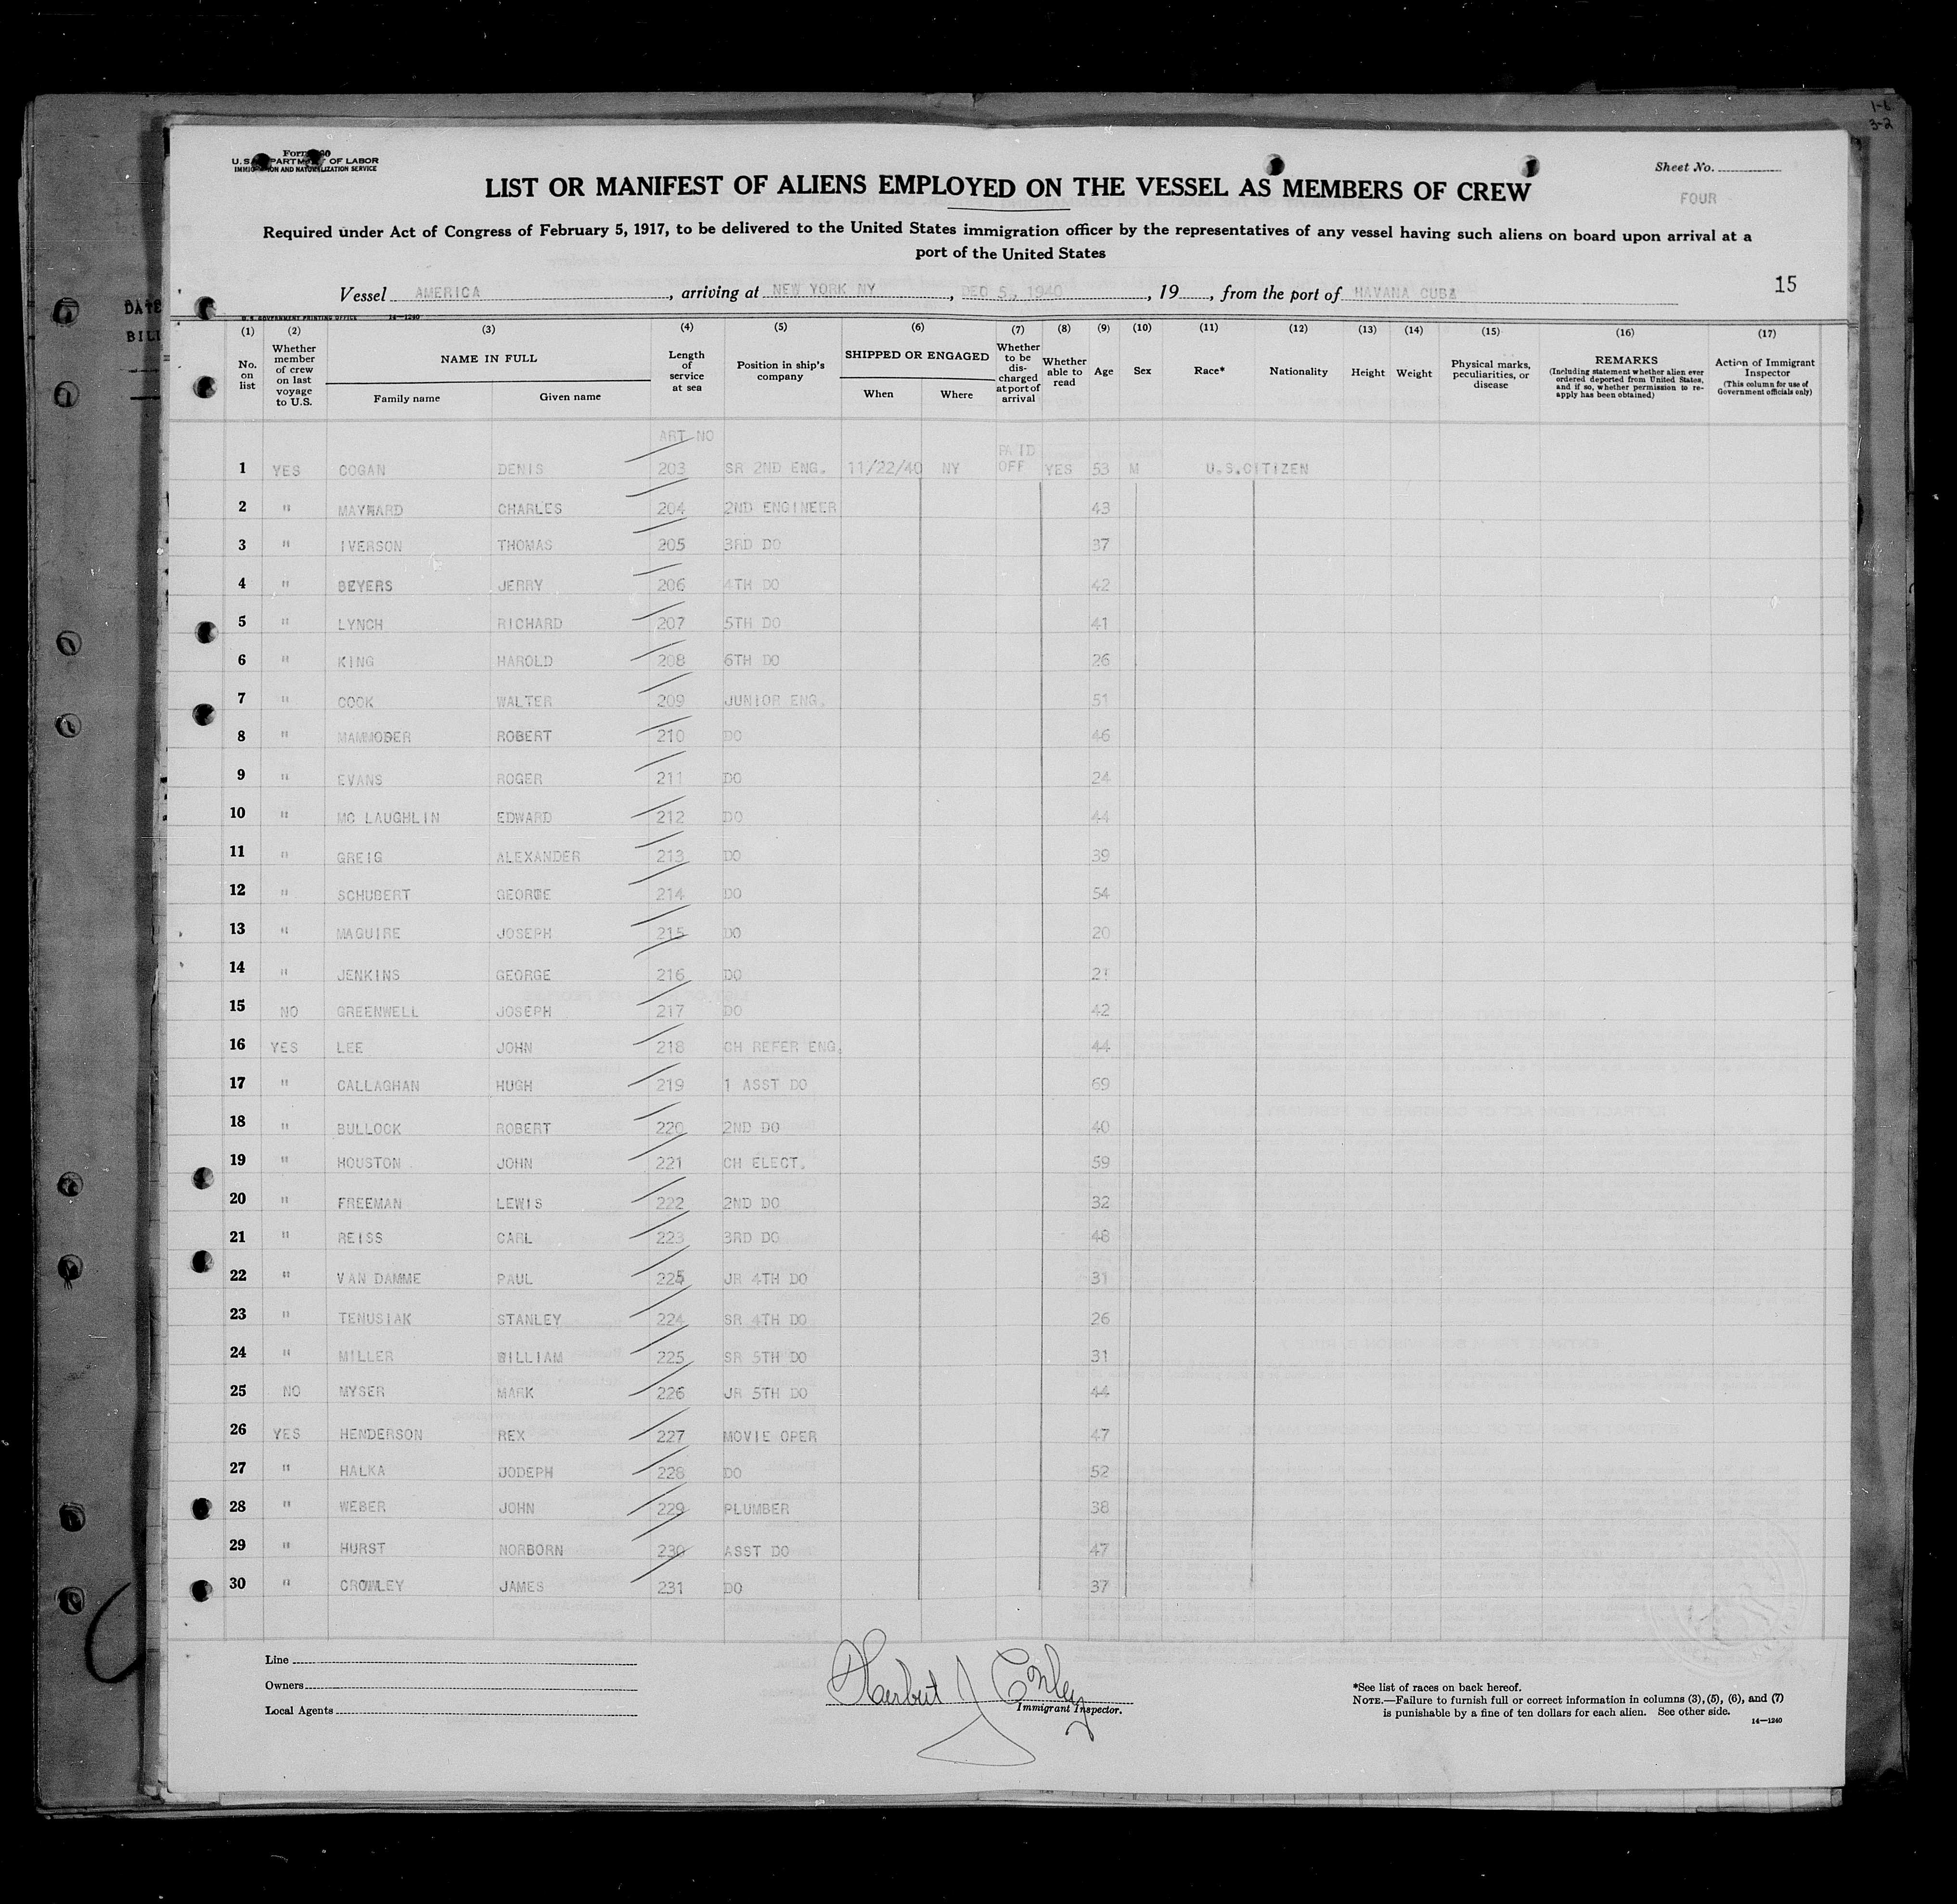 1-6
3-2
DATE
BILL
U.S. DEPARTMENT OF LABOR
IMMIGRATION AND NATURALIZATION SERVICE
Sheet No.
FOUR
LIST OR MANIFEST OF ALIENS EMPLOYED ON THE VESSEL AS MEMBERS OF CREW
Required under Act of Congress of February 5, 1917, to be delivered to the United States immigration officer by the representatives of any vessel having such aliens on board upon arrival at a
port of the United States
15
Vessel AMERICA, arriving at NEW YORK NY, DEC 5, 1940, 19, from the port of HAVANA CUBA
U. S. GOVERNMENT PRINTING OFFICE 14—1240
(1) (2) (3) (4) (5) (6) (7) (8) (9) (10) (11) (12) (13) (14) (15) (16) (17)
No. on list
Whether member of crew on last voyage to U.S.
NAME IN FULL
Family name
Given name
Length of service at sea
Position in ship's company
SHIPPED OR ENGAGED
When
Where
Whether to be discharged at port of arrival
Whether able to read
Age
Sex
Race*
Nationality
Height
Weight
Physical marks, peculiarities, or disease
REMARKS
(Including statement whether alien ever ordered deported from United States, and if so, whether permission to reapply has been obtained)
Action of Immigrant Inspector
(This column for use of Government officials only)
ART NO
PAID
1 YES COGAN DENIS 203 SR 2ND ENG. 11/22/40 NY OFF YES 53 M U.S.CITIZEN
2 " MAYNARD CHARLES 204 2ND ENGINEER 43
3 " IVERSON THOMAS 205 3RD DO 37
4 " BEYERS JERRY 206 4TH DO 42
5 " LYNCH RICHARD 207 5TH DO 41
6 " KING HAROLD 208 6TH DO 26
7 " COOK WALTER 209 JUNIOR ENG. 51
8 " MAMMOSER ROBERT 210 DO 46
9 " EVANS ROGER 211 DO 24
10 " MC LAUGHLIN EDWARD 212 DO 44
11 " GREIG ALEXANDER 213 DO 39
12 " SCHUBERT GEORGE 214 DO 54
13 " MAGUIRE JOSEPH 215 DO 20
14 " JENKINS GEORGE 216 DO 21
15 NO GREENWELL JOSEPH 217 DO 42
16 YES LEE JOHN 218 CH REFER ENG. 44
17 " CALLAGHAN HUGH 219 1 ASST DO 69
18 " BULLOCK ROBERT 220 2ND DO 40
19 " HOUSTON JOHN 221 CH ELECT. 59
20 " FREEMAN LEWIS 222 2ND DO 32
21 " REISS CARL 223 3RD DO 48
22 " VAN DAMME PAUL 225 JR 4TH DO 31
23 " TENUSIAK STANLEY 224 SR 4TH DO 26
24 " MILLER WILLIAM 225 SR 5TH DO 31
25 NO MYSER MARK 226 JR 5TH DO 44
26 YES HENDERSON REX 227 MOVIE OPER 47
27 " HALKA JODEPH 228 DO 52
28 " WEBER JOHN 229 PLUMBER 38
29 " HURST NORBORN 230 ASST DO 47
30 " CROWLEY JAMES 231 DO 37
Line
Owners
Local Agents
Herbert J Conley
Immigrant Inspector.
*See list of races on back hereof.
NOTE.—Failure to furnish full or correct information in columns (3), (5), (6), and (7)
is punishable by a fine of ten dollars for each alien. See other side.
14—1240